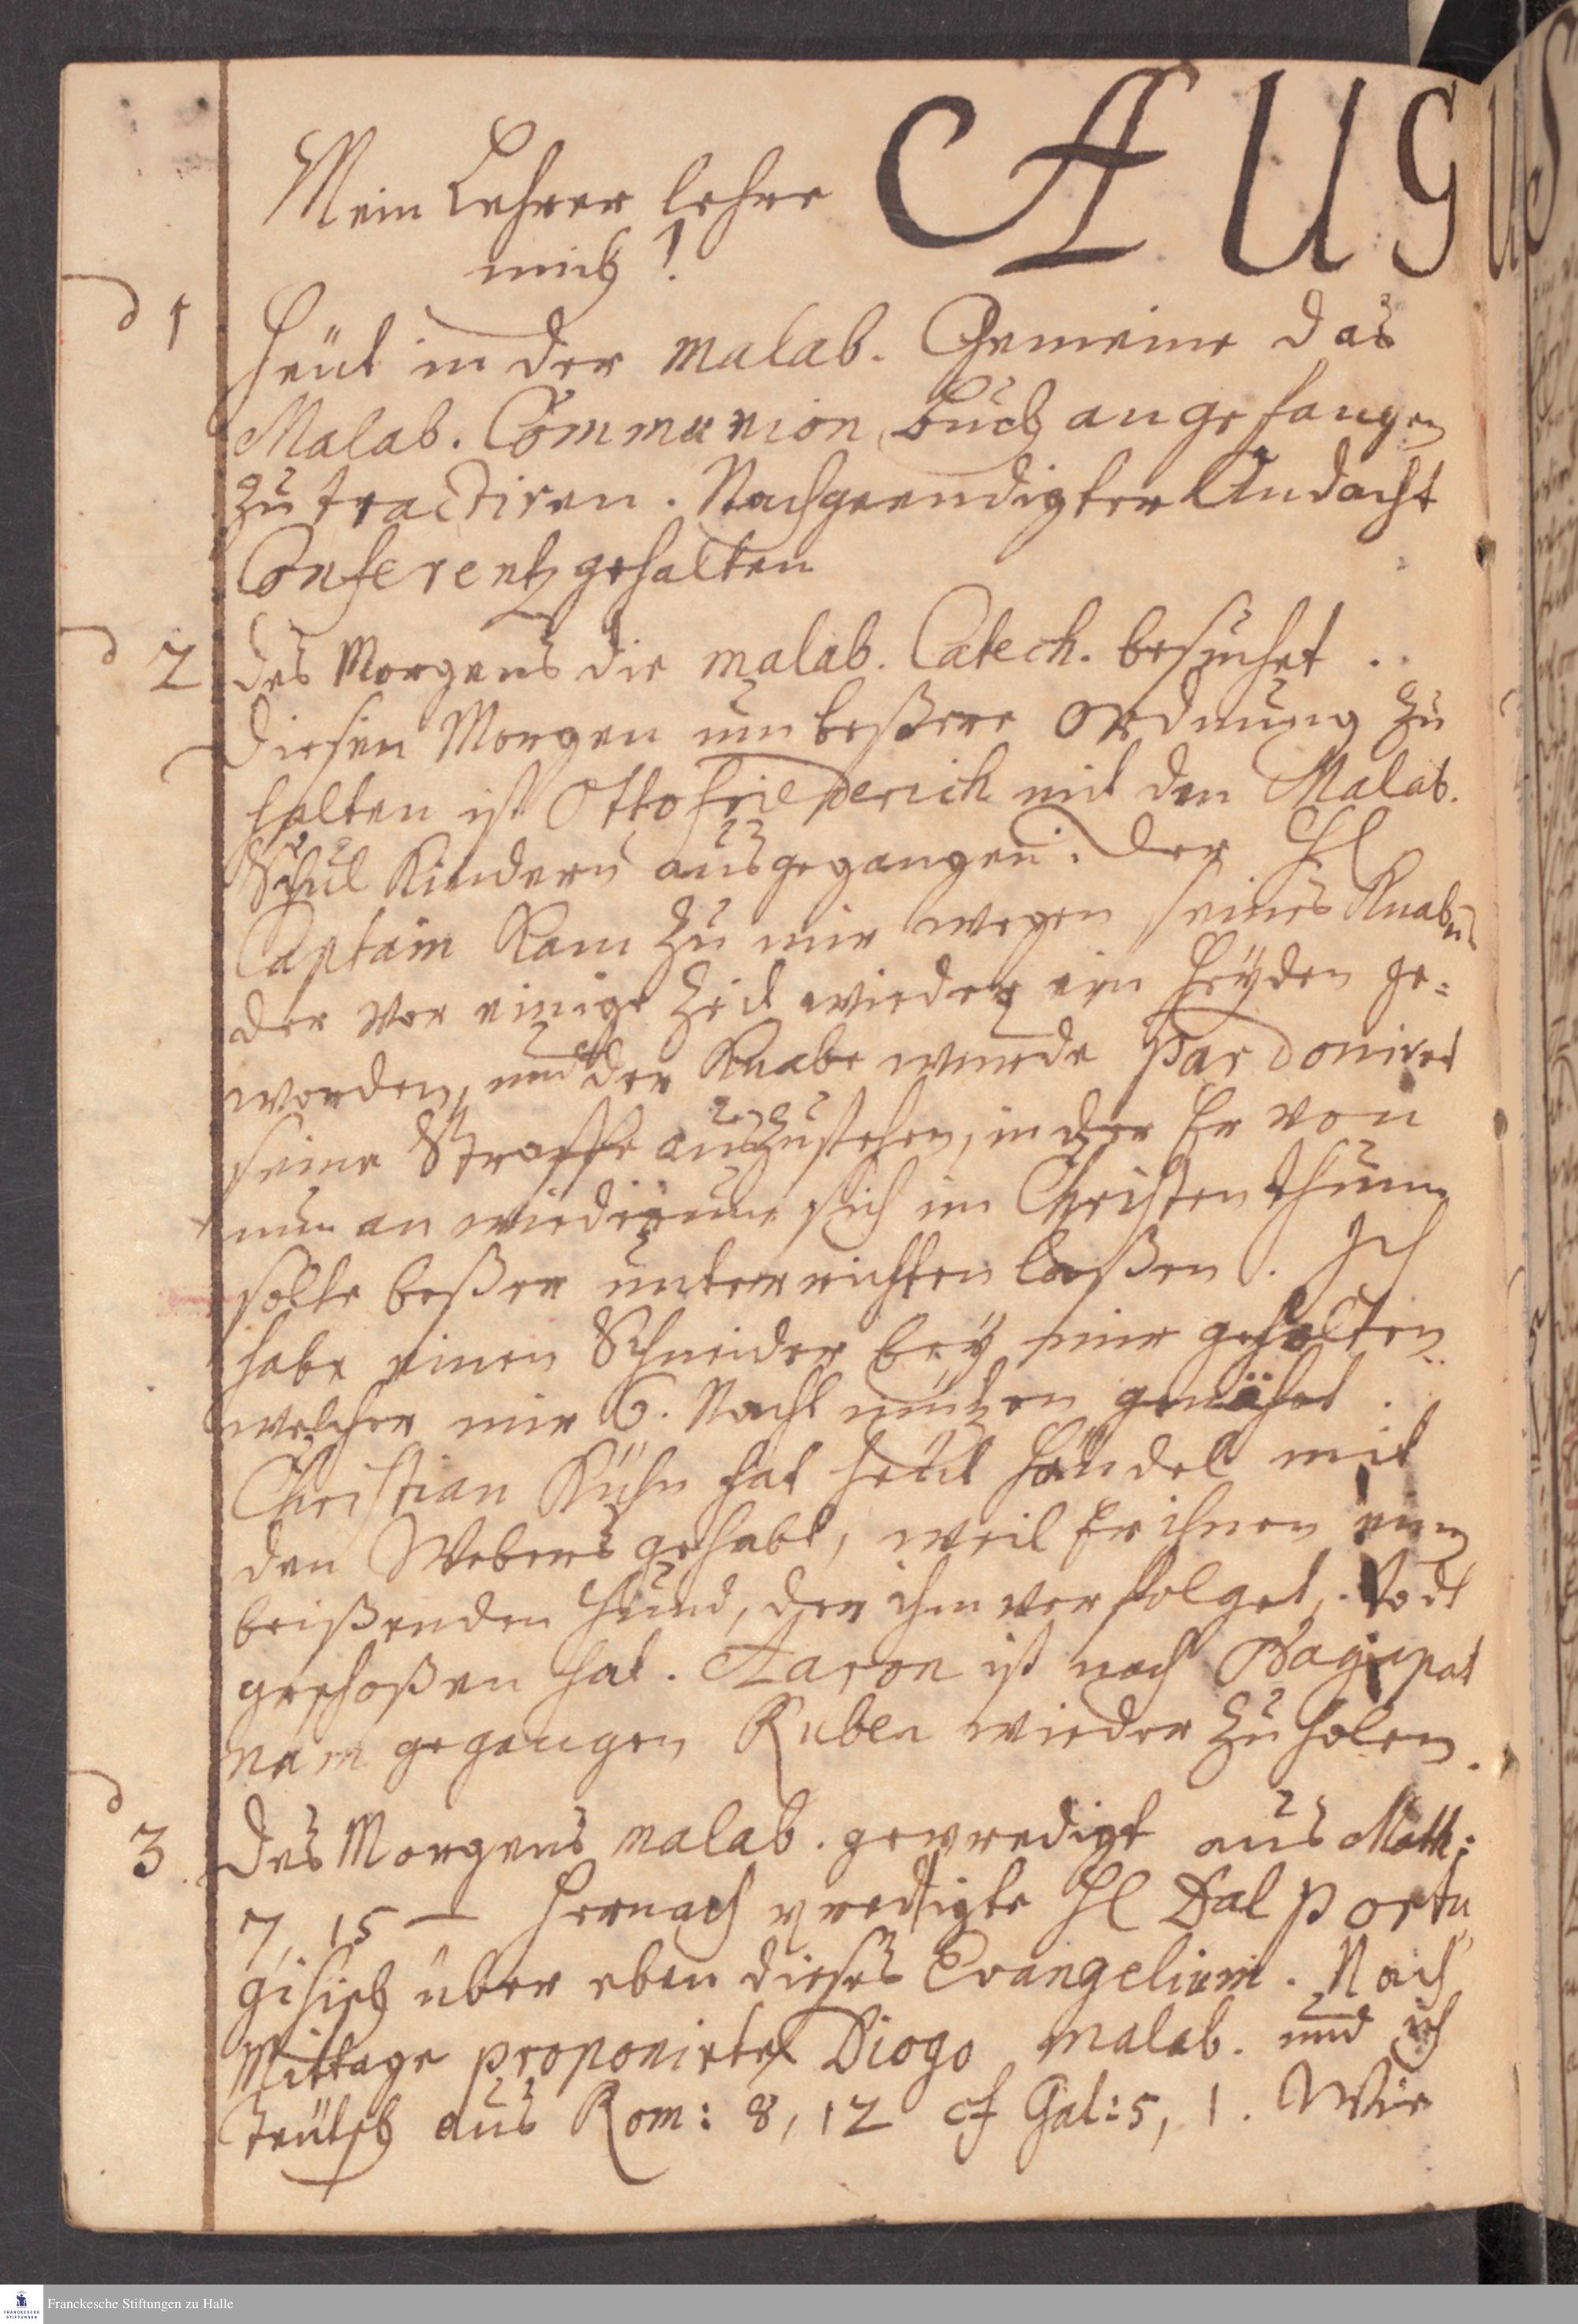 AUGUS
Mein Lehrer lehre
mich!
1 Heüt in der malab. Gemeine das
Malab. Communion buch angefangen
zu tractiren. Nach geendigter Andacht
Conferentz gehalten
2 des Morgens die malab. Catech. besuchet.
Diesen Morgen um beßere ordnung zu
halten ist Otto friederich mit den Malab.
Schul Kindern ausgegangen. Der H
Captain Kam zu mir wegen seines Knaben
der vor einige Zeit wieder ein Heyden ge=
worden, und der Knabe wurde pardoniret
seine Straffe auszustehen, in der Er von
nun an sich im Christenthum
solte beßer unterrichten laßen. Ich
habe einen Schneider bey mir gehalten
welcher mir 6. Nacht mützen genähet.
Christian Kühn hat heüt Händel mit
den Webers gehabt, weil Er ihnen einen
beißenden Hund, der ihm verfolget, todt
geschoßen hat. Aaron ist nach Nagapat
nam gegangen Ruben wieder zu holen.
3 Des Morgens malab. gepredigt aus Matth:
7, 15 — Hernach predigte H Dal portu
gisisch über eben dieses Evangelium. Nach
Mittage proponirte Diogo malab. und ich
teütsch aus Rom: 8, 12 cf Gal: 5, 1. Wir
Franckesche Stiftungen zu Halle